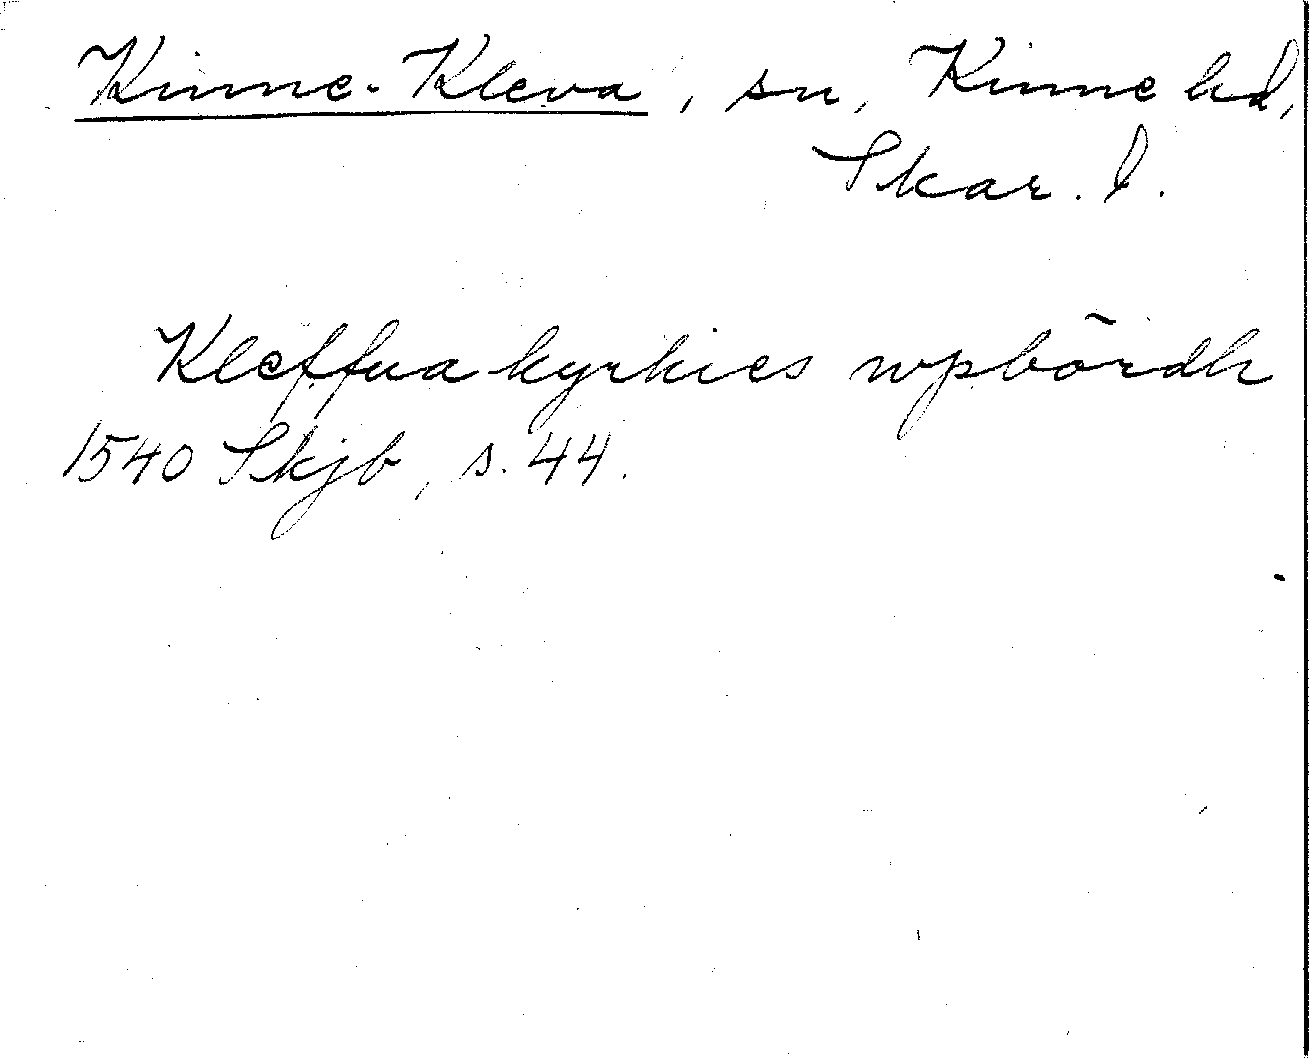 Kinne-Kleva, sn, Kinne hd,
Skar. l.
Kleffua kyrkies wpbördh
1540 Skjb, s. 44.